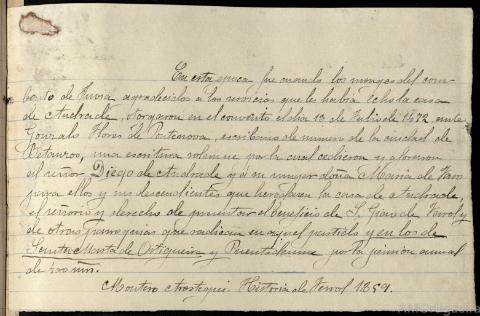 En esta época fue cuando los monges del con-
bento de Juvia, agradecidos a las mercias que les habia echo la casa
de Andrade, otorgaron en el convento el dia 10 de Julio de 1472, ante
Gonzalo Flores de Pontenova, escribano de numero de la ciudad de
Betanzos, una escritura solemne por la cual cedieron y
al señor Diego de Andrade y a su muger doña Maria de Haro
para ellos y sus descendientes que heredasen la casa de Andrade,
el señorio y derecho de presentar el beneficio de S. Julian de Ferrol y
de otras parroquias que radican en aquel partido y en los de
Santa Marta de Ortigueira y Puentedeume por la pension anual
de 400 mrs.
Montero Arostegui Historia de Ferrol 1859.